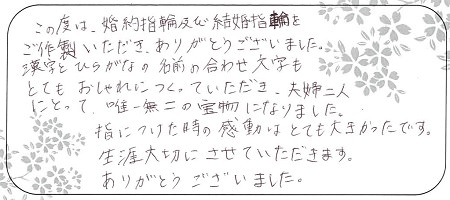 この度は、婚約指輪及び結婚指輪を
ご作製いただき、ありがとうございました。
漢字とひらがなの名前の合わせ文字も
とてもおしゃれにつくっていただき、夫婦二人
にとって、唯一無二の宝物になりました。
指につけた時の感動はとても大きかったです。
生涯大切にさせていただきます。
ありがとうございました。